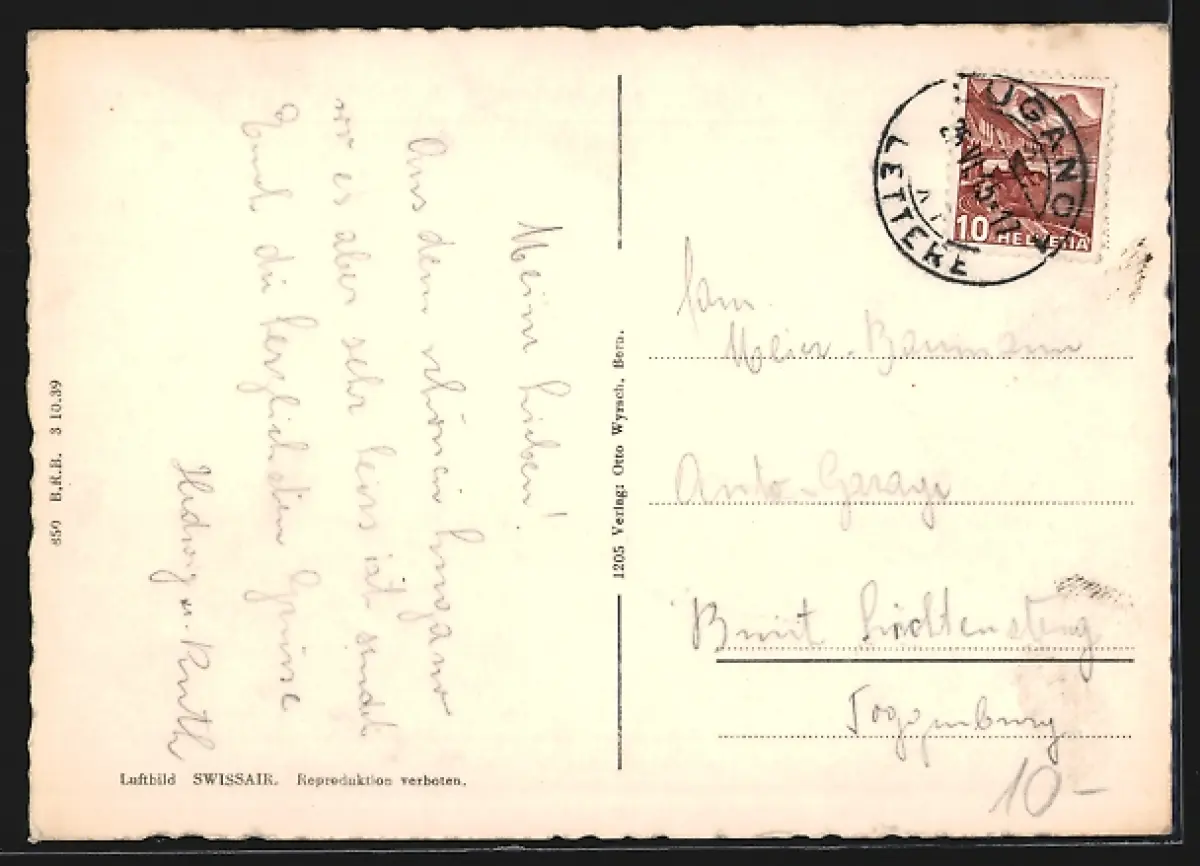 Meine Lieben!
Aus dem schönen Lugano
wo es aber sehr heiss ist sendet
Euch die herzlichsten Grüsse
Hedwig u. Ruth
850 B.R.B. 3 10.39
Luftbild SWISSAIR. Reproduktion verboten.
1205 Verlag: Otto Wyrsch, Bern.
LUGANO
LETTERE
10 HELVETIA
Fam.
Meier-Baumann
Auto-Garage
Lichtensteig
Toggenburg
10-